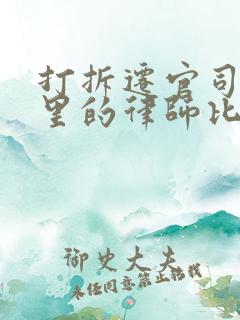 打拆迁官司
里的律师比
御史大夫
未经同意禁止转载